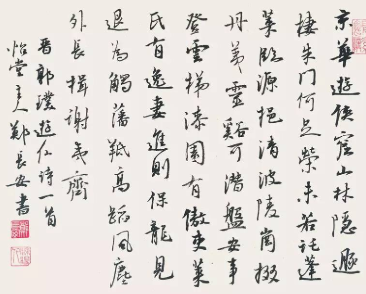 京華遊俠窟山林隱遯
棲朱門何足榮未若託蓬
萊臨源挹清波陵崗掇
丹荑靈谿可潛盤安事
登雲梯漆園有傲吏萊
氏有逸妻進則保龍見
退為觸藩羝高蹈風塵
外長揖謝夷齊
晉郭璞遊仙詩一首
怡堂主人鄭長安書